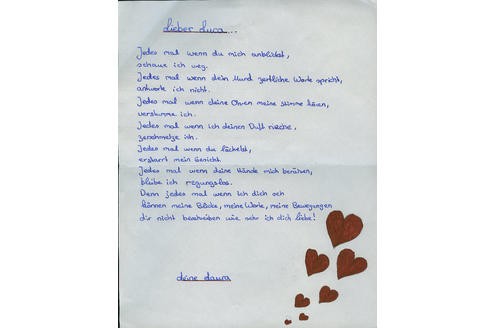 Lieber Luca...
Jedes mal wenn du mich anblickst,
schaue ich weg.
Jedes mal wenn dein Mund zertliche Worte spricht,
antworte ich nicht.
Jedes mal wenn deine Ohren meine Stimme hören,
verstumme ich.
Jedes mal wenn ich deinen Duft rieche,
zerschmelze ich.
Jedes mal wenn du lächelst,
erstarrt mein Gesicht.
Jedes mal wenn deine Hände mich berühren,
bleibe ich regungslos.
Denn jedes mal wenn ich dich seh
können meine Blicke, meine Worte, meine Bewegungen
dir nicht beschreiben wie sehr ich dich liebe!
deine Laura